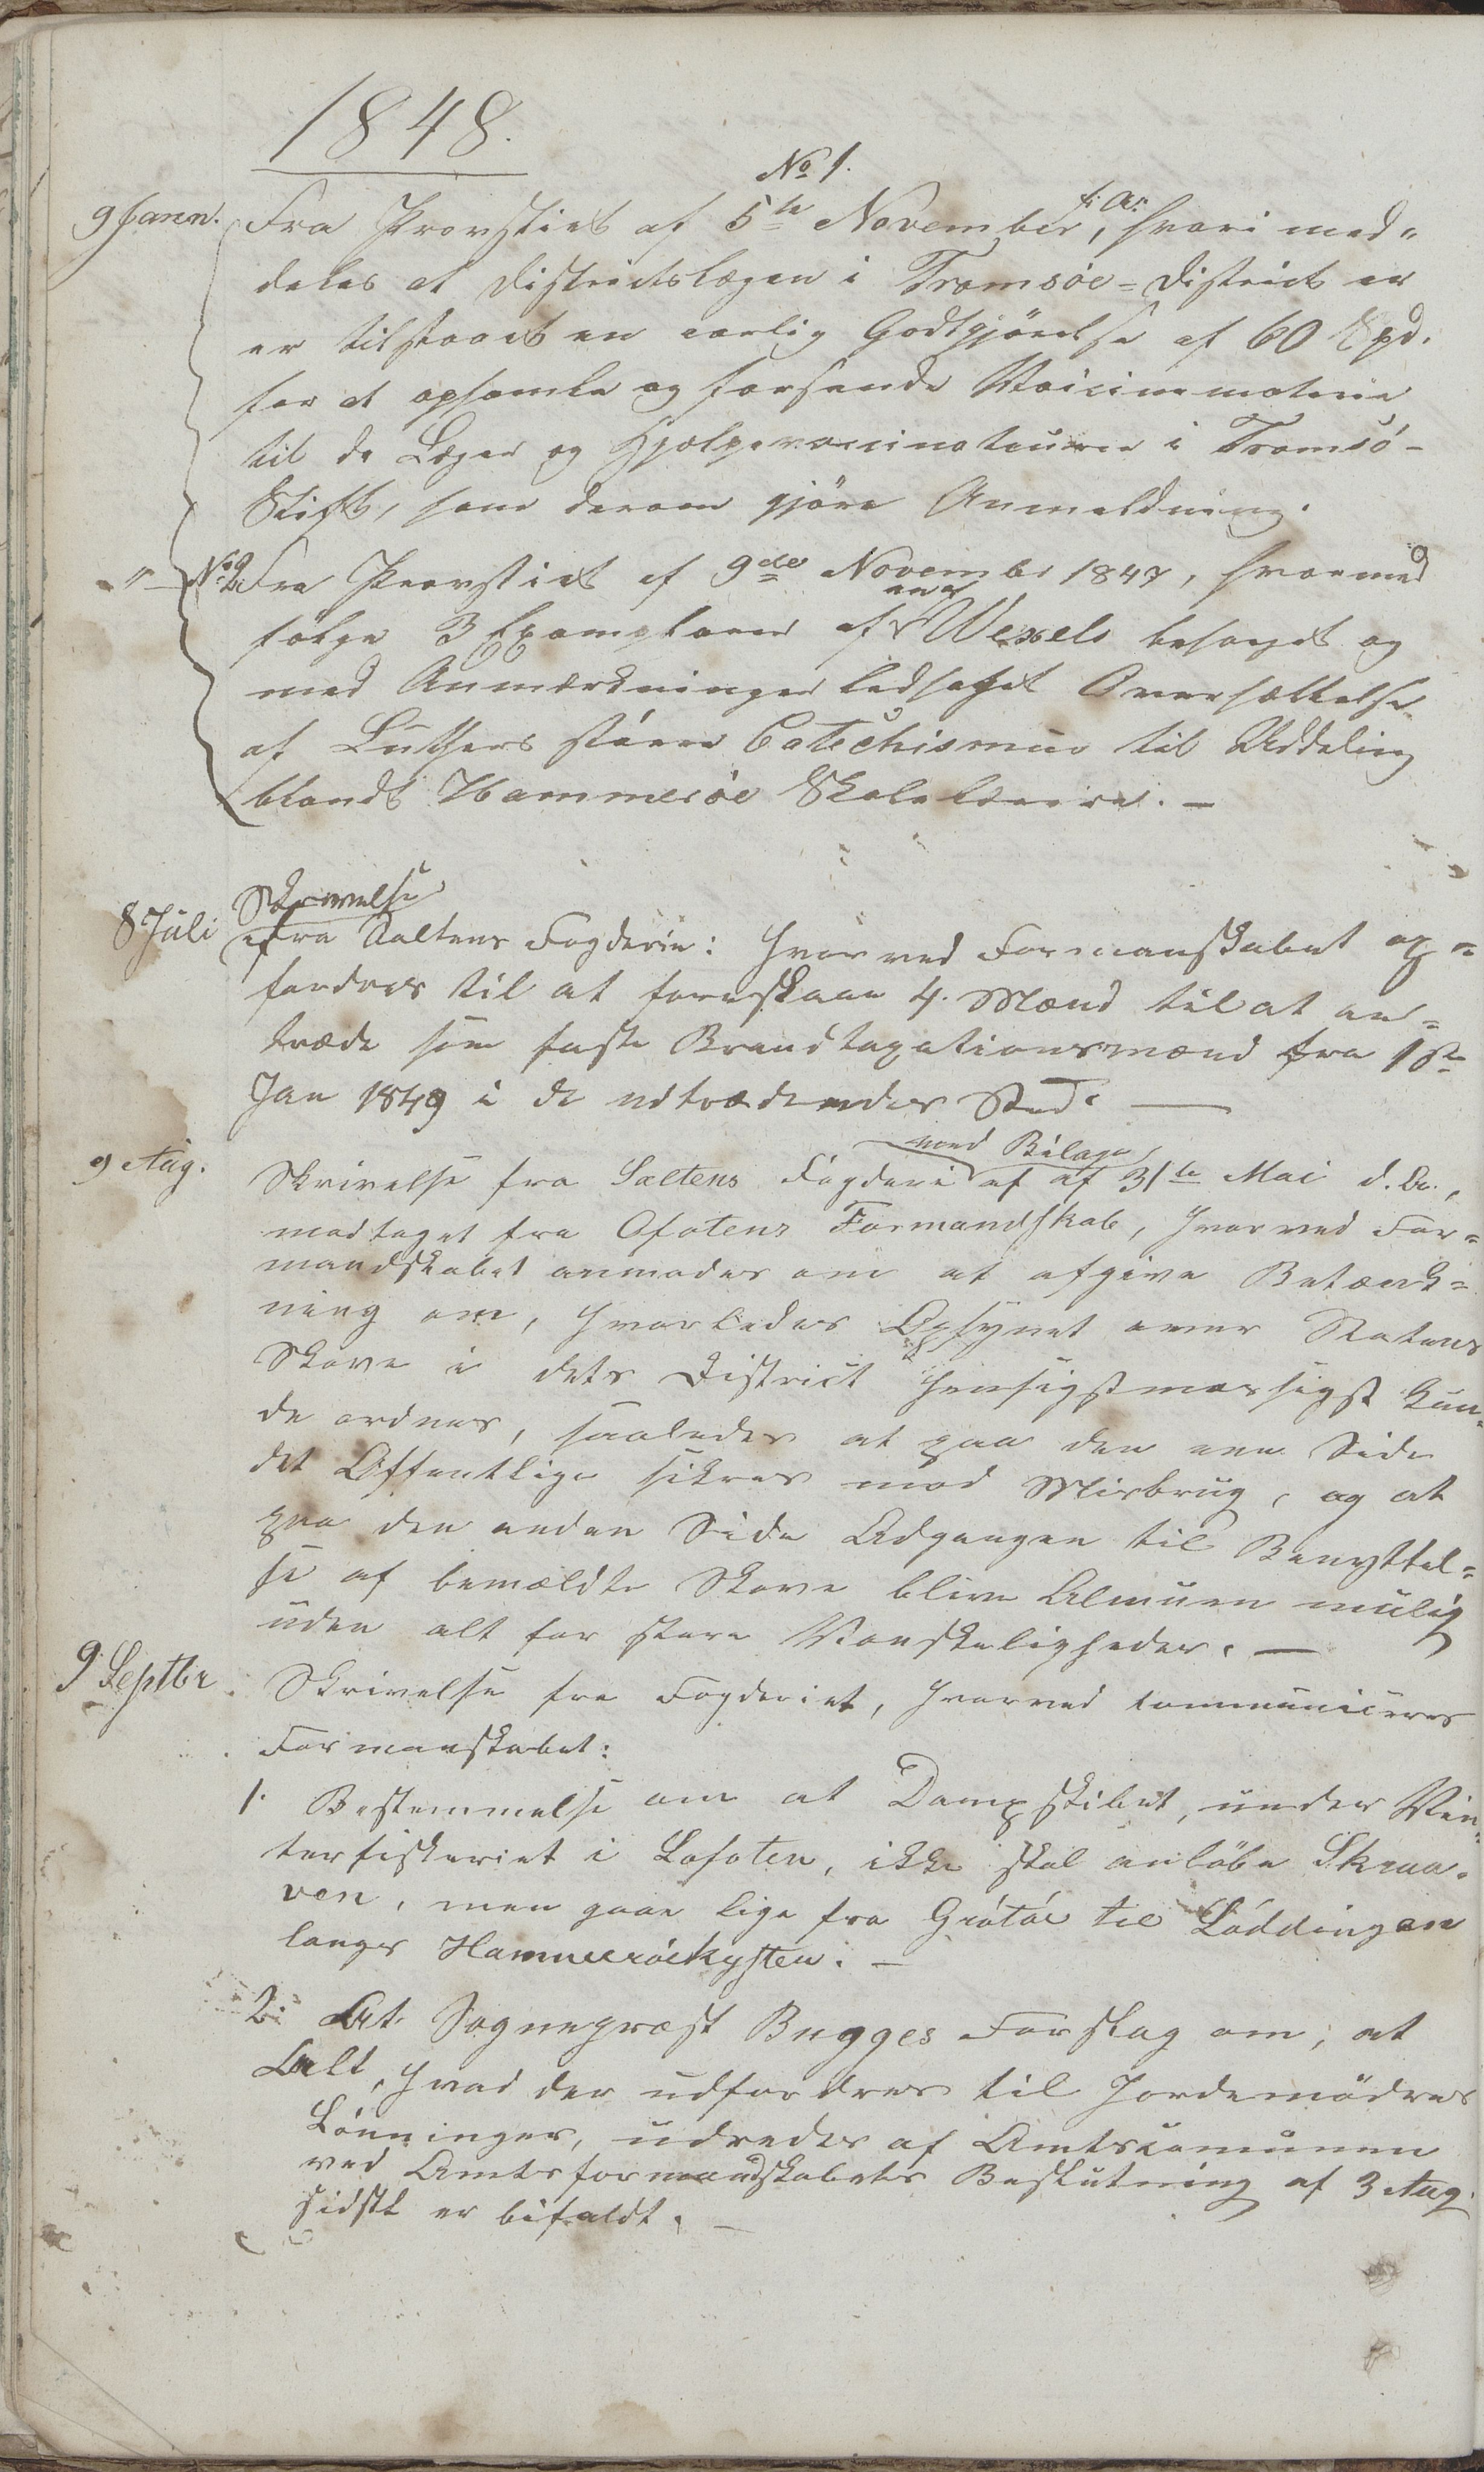 1848.
No 1.
9 Janu. Fra Provstiet af 5te November f: A:, hvori med„
deles at Districtslægen i Tromsöe=District er
er tilstaaet en aarlig Godtgjörelse af 60 Spd.
for at opsamle og forsende Vaccinematerie
til de Læger og Hjælpevaccinateurer i Tromsö-
Stift, som derom gjöre Anmeldning.
" No 2 Fra Provstiet af 9de November 1847, hvormed
fölge 3 Exemplarer af en af Wexels besörget og
med Anmærkninger ledsaget Oversættelse
af Luthers störe Catechismus til Uddeling
blandt Hammeröe Skolelærere. —
8 Juli Skrivelse
fra Saltens Fogderie: hvorved Formanskabet op=
fordres til at foreslaae 4. Mænd til at an=
træde som faste Brandtaxationsmænd fra 1ste
Jan 1849 i de udtrædendes Sted. —
9 Aug. Skrivelse fra Saltens Fogderi med Bilage af af 31te Mai d. A.,
modtaget fra Ofotens Formandskab, hvorved For=
mandskabet anmodes om at afgive Betænk=
ning om, hvorledes Opsynet over Statens
Skove i dets District hensigtsmæssigst kun=
de ordnes, saaledes at paa den ene Side
det Offentlige sikres mod Misbrug, og at
paa den anden Side Adgangen til Benyttel=
se af bemældte Skove blive Almuen mulig
uden alt for store Vanskeligheder. —
9 Septbr Skrivelse fra Fogderiet, hvorved communiceres
Formanskabet:
1. Bestemmelse om at Dampskibet, under Vin=
terfiskeriet i Lofoten, ikke skal anlöbe Skraa=
ven, men gaae lige fra Grötöe til Löddingen
langs Hammeröekysten. —
2. At Sognepræst Bugges Forslag om, at
Alt, hvad der udfordres til Jordemödres
Lönninger, udredes af Amtscomunen
ved Amtsformandskabets Beslutning af 3 Aug.
sidstl er bifaldt. —